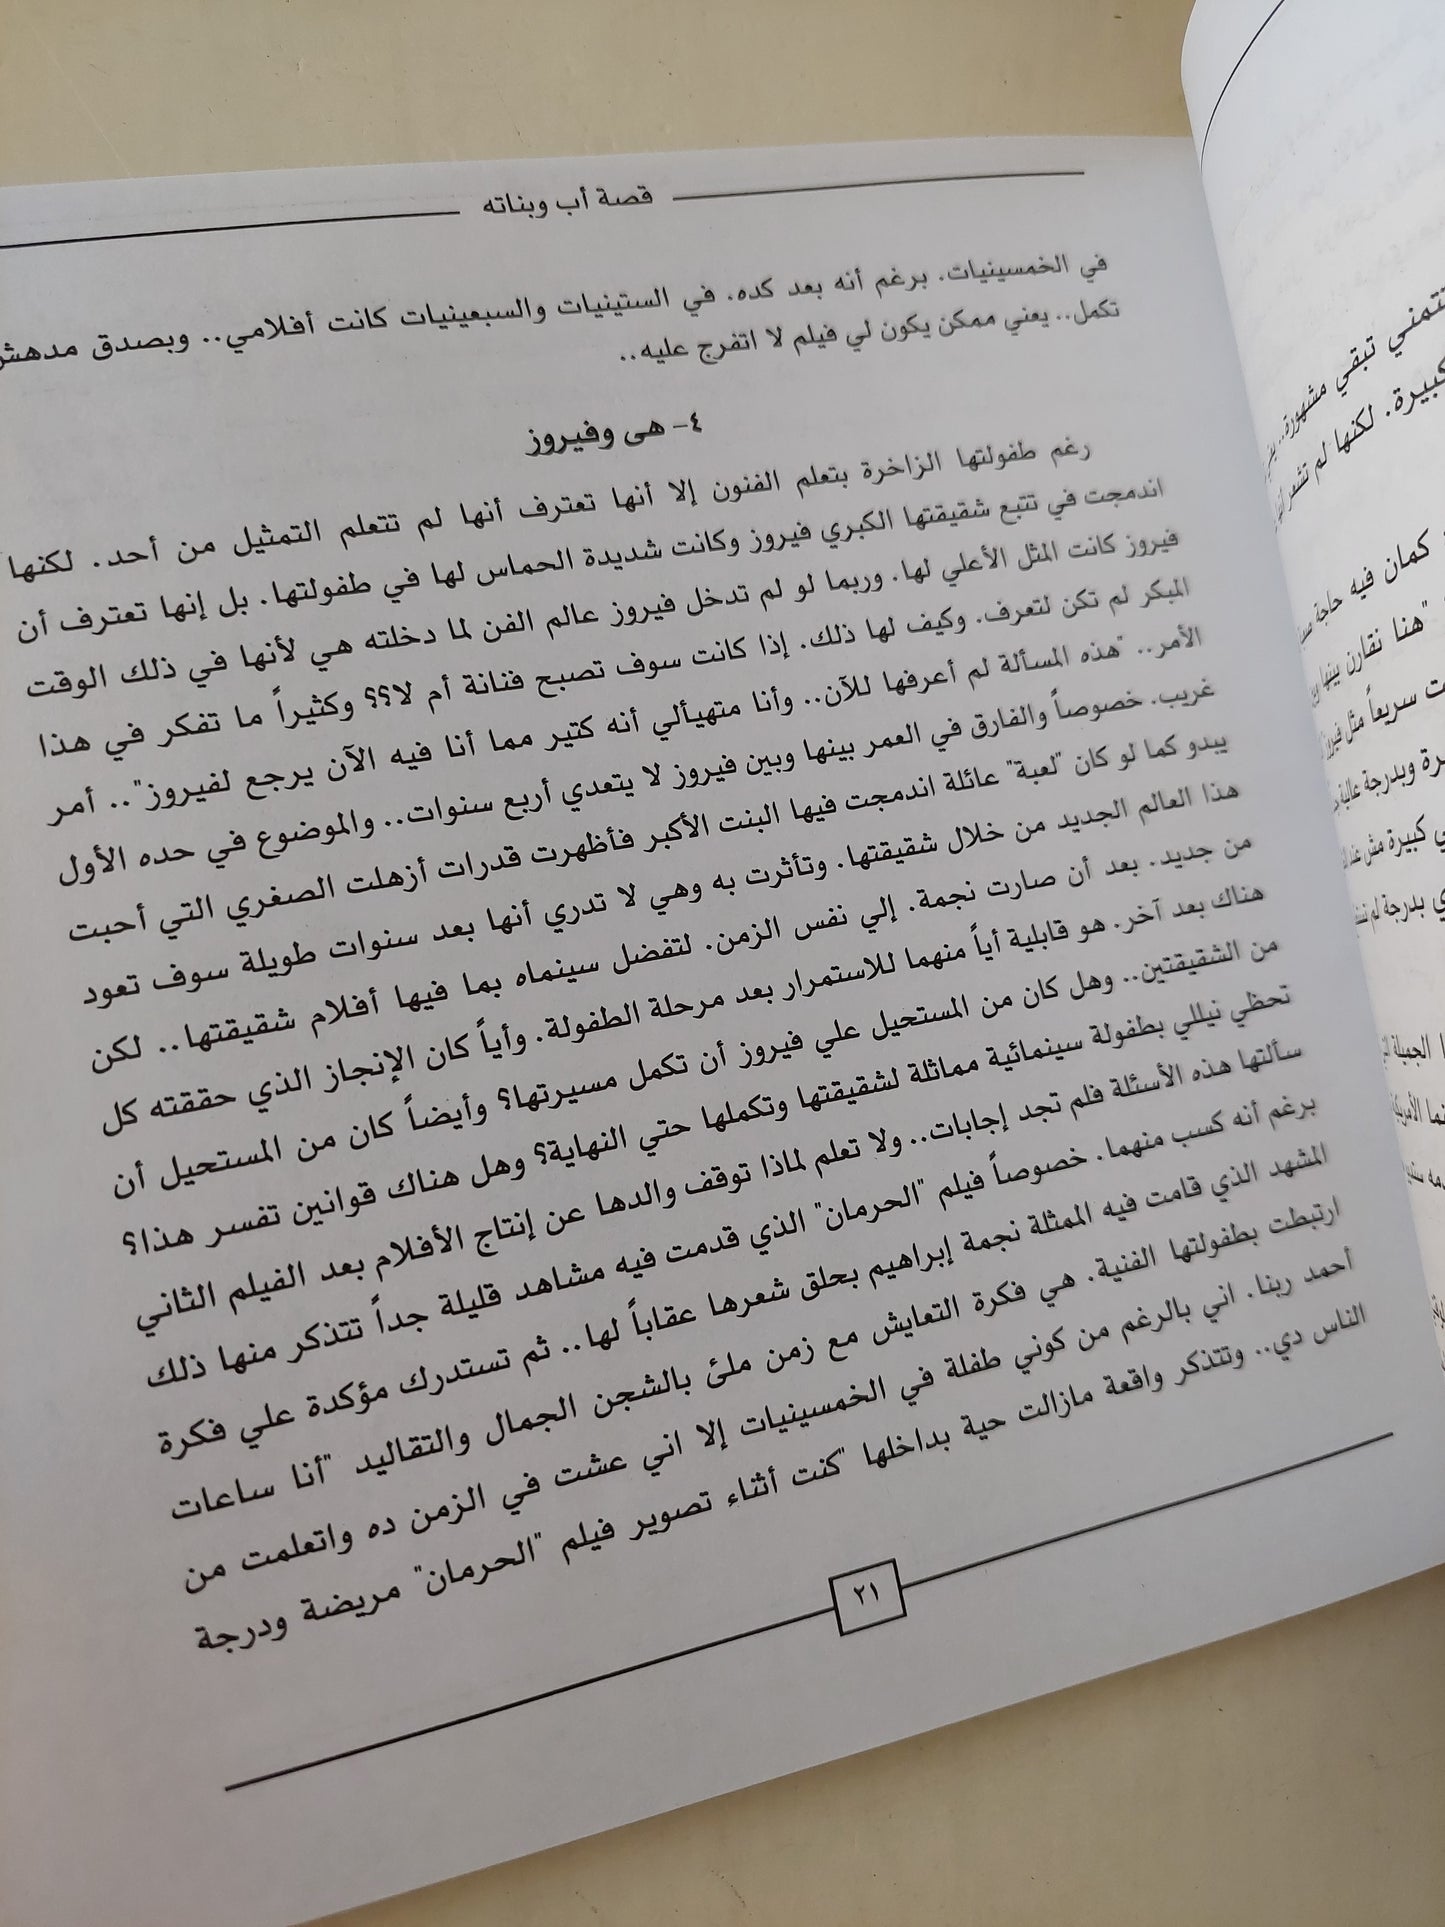 قصة أب وبناته
في الخمسينيات. برغم أنه بعد كده. في الستينيات والسبعينيات كانت أفلامي.. وبصدق مدهش
تكمل.. يعني ممكن يكون لي فيلم لا اتفرج عليه..
٤- هى وفيروز
رغم طفولتها الزاخرة بتعلم الفنون إلا أنها تعترف أنها لم تتعلم التمثيل من أحد. لكنها
اندمجت في تتبع شقيقتها الكبري فيروز وكانت شديدة الحماس لها في طفولتها. بل إنها تعترف أن
فيروز كانت المثل الأعلي لها. وربما لو لم تدخل فيروز عالم الفن لما دخلته هي لأنها في ذلك الوقت
المبكر لم تكن لتعرف. وكيف لها ذلك. إذا كانت سوف تصبح فنانة أم لا؟؟ وكثيراً ما تفكر في هذا
الأمر.. "هذه المسألة لم أعرفها للآن.. وأنا متهيألي أنه كتير مما أنا فيه الآن يرجع لفيروز".. أمر
غريب. خصوصاً والفارق في العمر بينها وبين فيروز لا يتعدي أربع سنوات.. والموضوع في حده الأول
يبدو كما لو كان "لعبة" عائلة اندمجت فيها البنت الأكبر فأظهرت قدرات أزهلت الصغري التي أحبت
هذا العالم الجديد من خلال شقيقتها. وتأثرت به وهي لا تدري أنها بعد سنوات طويلة سوف تعود
من جديد. بعد أن صارت نجمة. إلي نفس الزمن. لتفضل سينماه بما فيها أفلام شقيقتها.. لكن
هناك بعد آخر. هو قابلية أياً منهما للاستمرار بعد مرحلة الطفولة. وأياً كان الإنجاز الذي حققته كل
من الشقيقتين.. وهل كان من المستحيل علي فيروز أن تكمل مسيرتها؟ وأيضاً كان من المستحيل أن
تحظي نيللي بطفولة سينمائية مماثلة لشقيقتها وتكملها حتي النهاية؟ وهل هناك قوانين تفسر هذا؟
سألتها هذه الأسئلة فلم تجد إجابات.. ولا تعلم لماذا توقف والدها عن إنتاج الأفلام بعد الفيلم الثاني
برغم أنه كسب منهما. خصوصاً فيلم "الحرمان" الذي قدمت فيه مشاهد قليلة جداً تتذكر منها ذلك
المشهد الذي قامت فيه الممثلة نجمة إبراهيم بحلق شعرها عقاباً لها.. ثم تستدرك مؤكدة علي فكرة
ارتبطت بطفولتها الفنية. هي فكرة التعايش مع زمن ملئ بالشجن الجمال والتقاليد "أنا ساعات
أحمد ربنا. اني بالرغم من كوني طفلة في الخمسينيات إلا اني عشت في الزمن ده واتعلمت من
الناس دي.. وتتذكر واقعة مازالت حية بداخلها "كنت أثناء تصوير فيلم "الحرمان" مريضة ودرجة
٢١
تتمني تبقي مشهورة..
كبيرة. لكنها لم تشعر
كمان فيه حاجة
"هنا نقارن بينها
سريعاً مثل فيروز
وبدرجة عالية
كبيرة مش
بدرجة لم
الجميلة